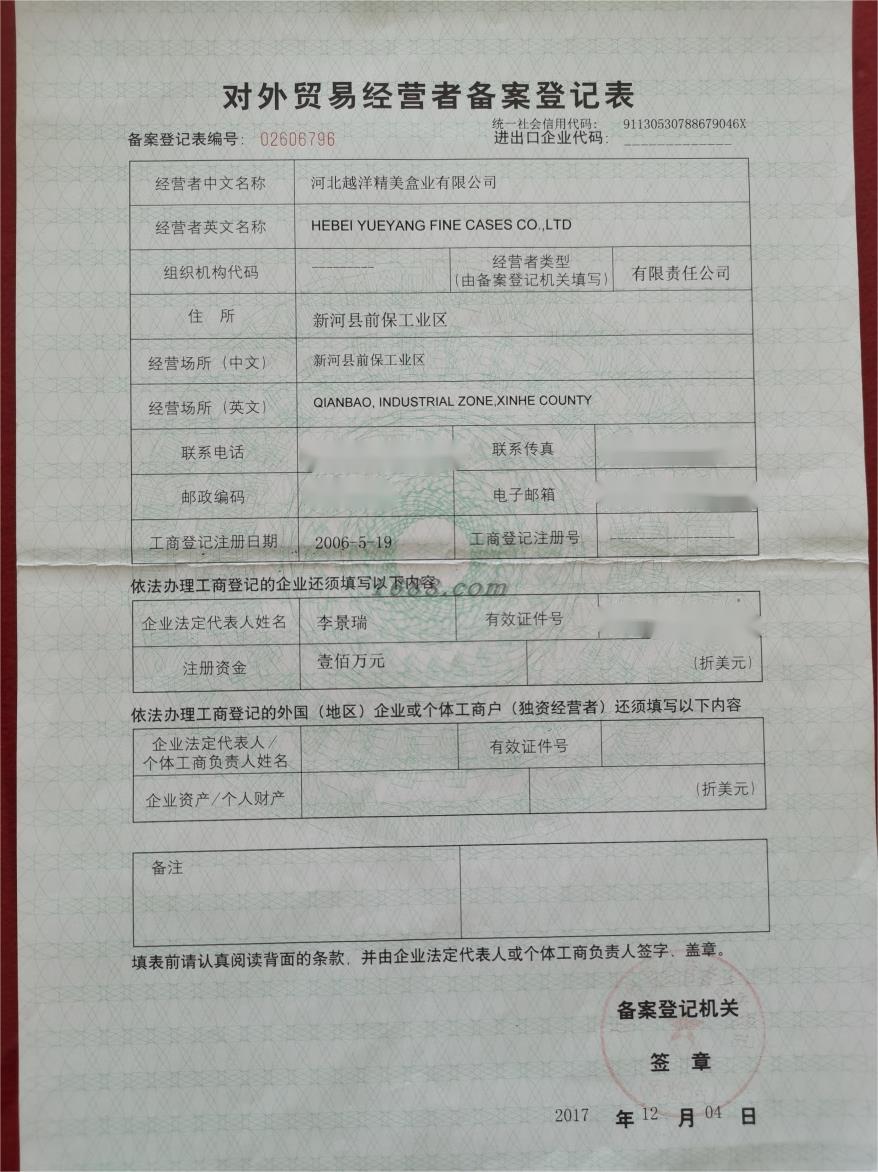 对外贸易经营者备案登记表
统一社会信用代码： 91130530788679046X
备案登记表编号: 02606796 进出口企业代码:
经营者中文名称 河北越洋精美盒业有限公司
经营者英文名称 HEBEI YUEYANG FINE CASES CO.,LTD
组织机构代码 经营者类型 (由备案登记机关填写) 有限责任公司
住 所 新河县前保工业区
经营场所（中文） 新河县前保工业区
经营场所（英文） QIANBAO, INDUSTRIAL ZONE,XINHE COUNTY
联系电话 联系传真
邮政编码 电子邮箱
工商登记注册日期 2006-5-19 工商登记注册号
依法办理工商登记的企业还须填写以下内容
1688.com
企业法定代表人姓名 李景瑞 有效证件号
注册资金 壹佰万元 (折美元)
依法办理工商登记的外国（地区）企业或个体工商户（独资经营者）还须填写以下内容
企业法定代表人/
个体工商负责人姓名 有效证件号
企业资产/个人财产 (折美元)
备注
填表前请认真阅读背面的条款，并由企业法定代表人或个体工商负责人签字、盖章。
备案登记机关
签 章
2017 年 12 月 04 日